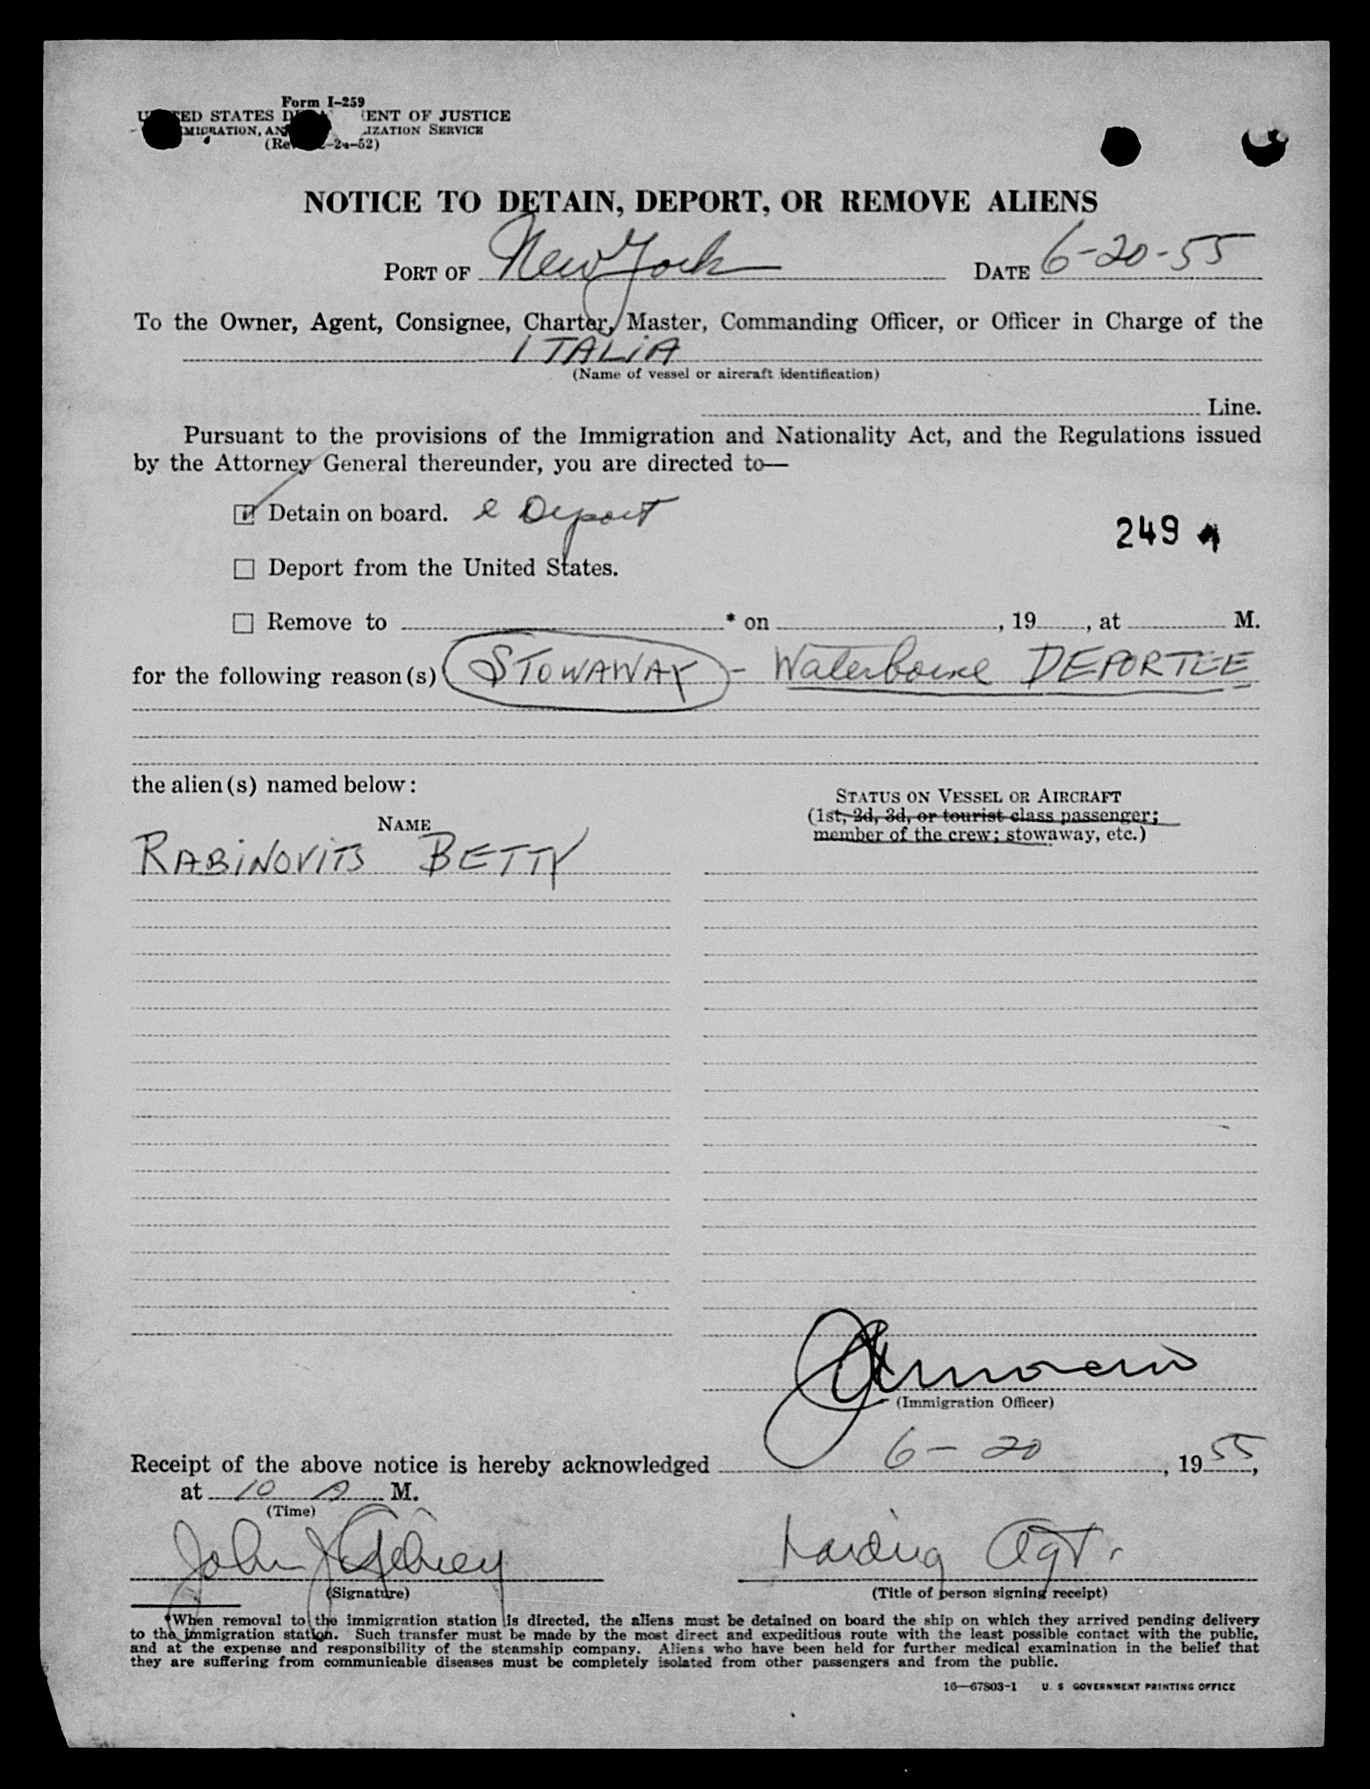 Form I-259
UNITED STATES DEPARTMENT OF JUSTICE
IMMIGRATION AND NATURALIZATION SERVICE
(Rev. -24-52)
NOTICE TO DETAIN, DEPORT, OR REMOVE ALIENS
PORT OF New York DATE 6-20-55
To the Owner, Agent, Consignee, Charter, Master, Commanding Officer, or Officer in Charge of the
ITALIA
(Name of vessel or aircraft identification)
Line.
Pursuant to the provisions of the Immigration and Nationality Act, and the Regulations issued
by the Attorney General thereunder, you are directed to—
☑ Detain on board. & Deport
249
☐ Deport from the United States.
☐ Remove to * on , 19 , at M.
for the following reason(s) STOWAWAY - Waterborne DEPORTEE
the alien(s) named below:
STATUS ON VESSEL OR AIRCRAFT
(1st, 2d, 3d, or tourist class passenger;
NAME
member of the crew; stowaway, etc.)
RABINOVITS BETTY
(Immigration Officer)
Receipt of the above notice is hereby acknowledged 6-20, 1955,
at 10 A M.
(Time)
John J Agt.
(Signature) (Title of person signing receipt)
*When removal to the immigration station is directed, the aliens must be detained on board the ship on which they arrived pending delivery
to the immigration station. Such transfer must be made by the most direct and expeditious route with the least possible contact with the public,
and at the expense and responsibility of the steamship company. Aliens who have been held for further medical examination in the belief that
they are suffering from communicable diseases must be completely isolated from other passengers and from the public.
16—67803-1 U. S. GOVERNMENT PRINTING OFFICE